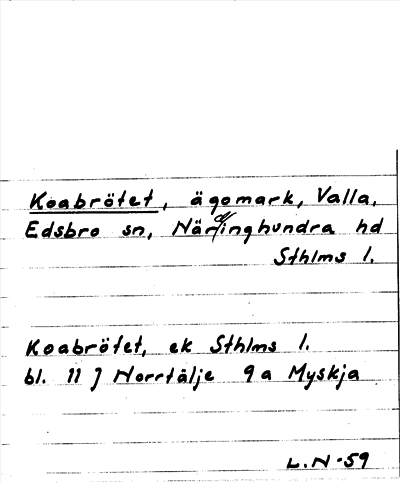 Koabrötet, ägomark, Valla,
Edsbro sn, Närdinghundra hd
Sthlms l.
Koabrötet, ek Sthlms l.
bl. 11 J Norrtälje 9a Myskja
L.N-59